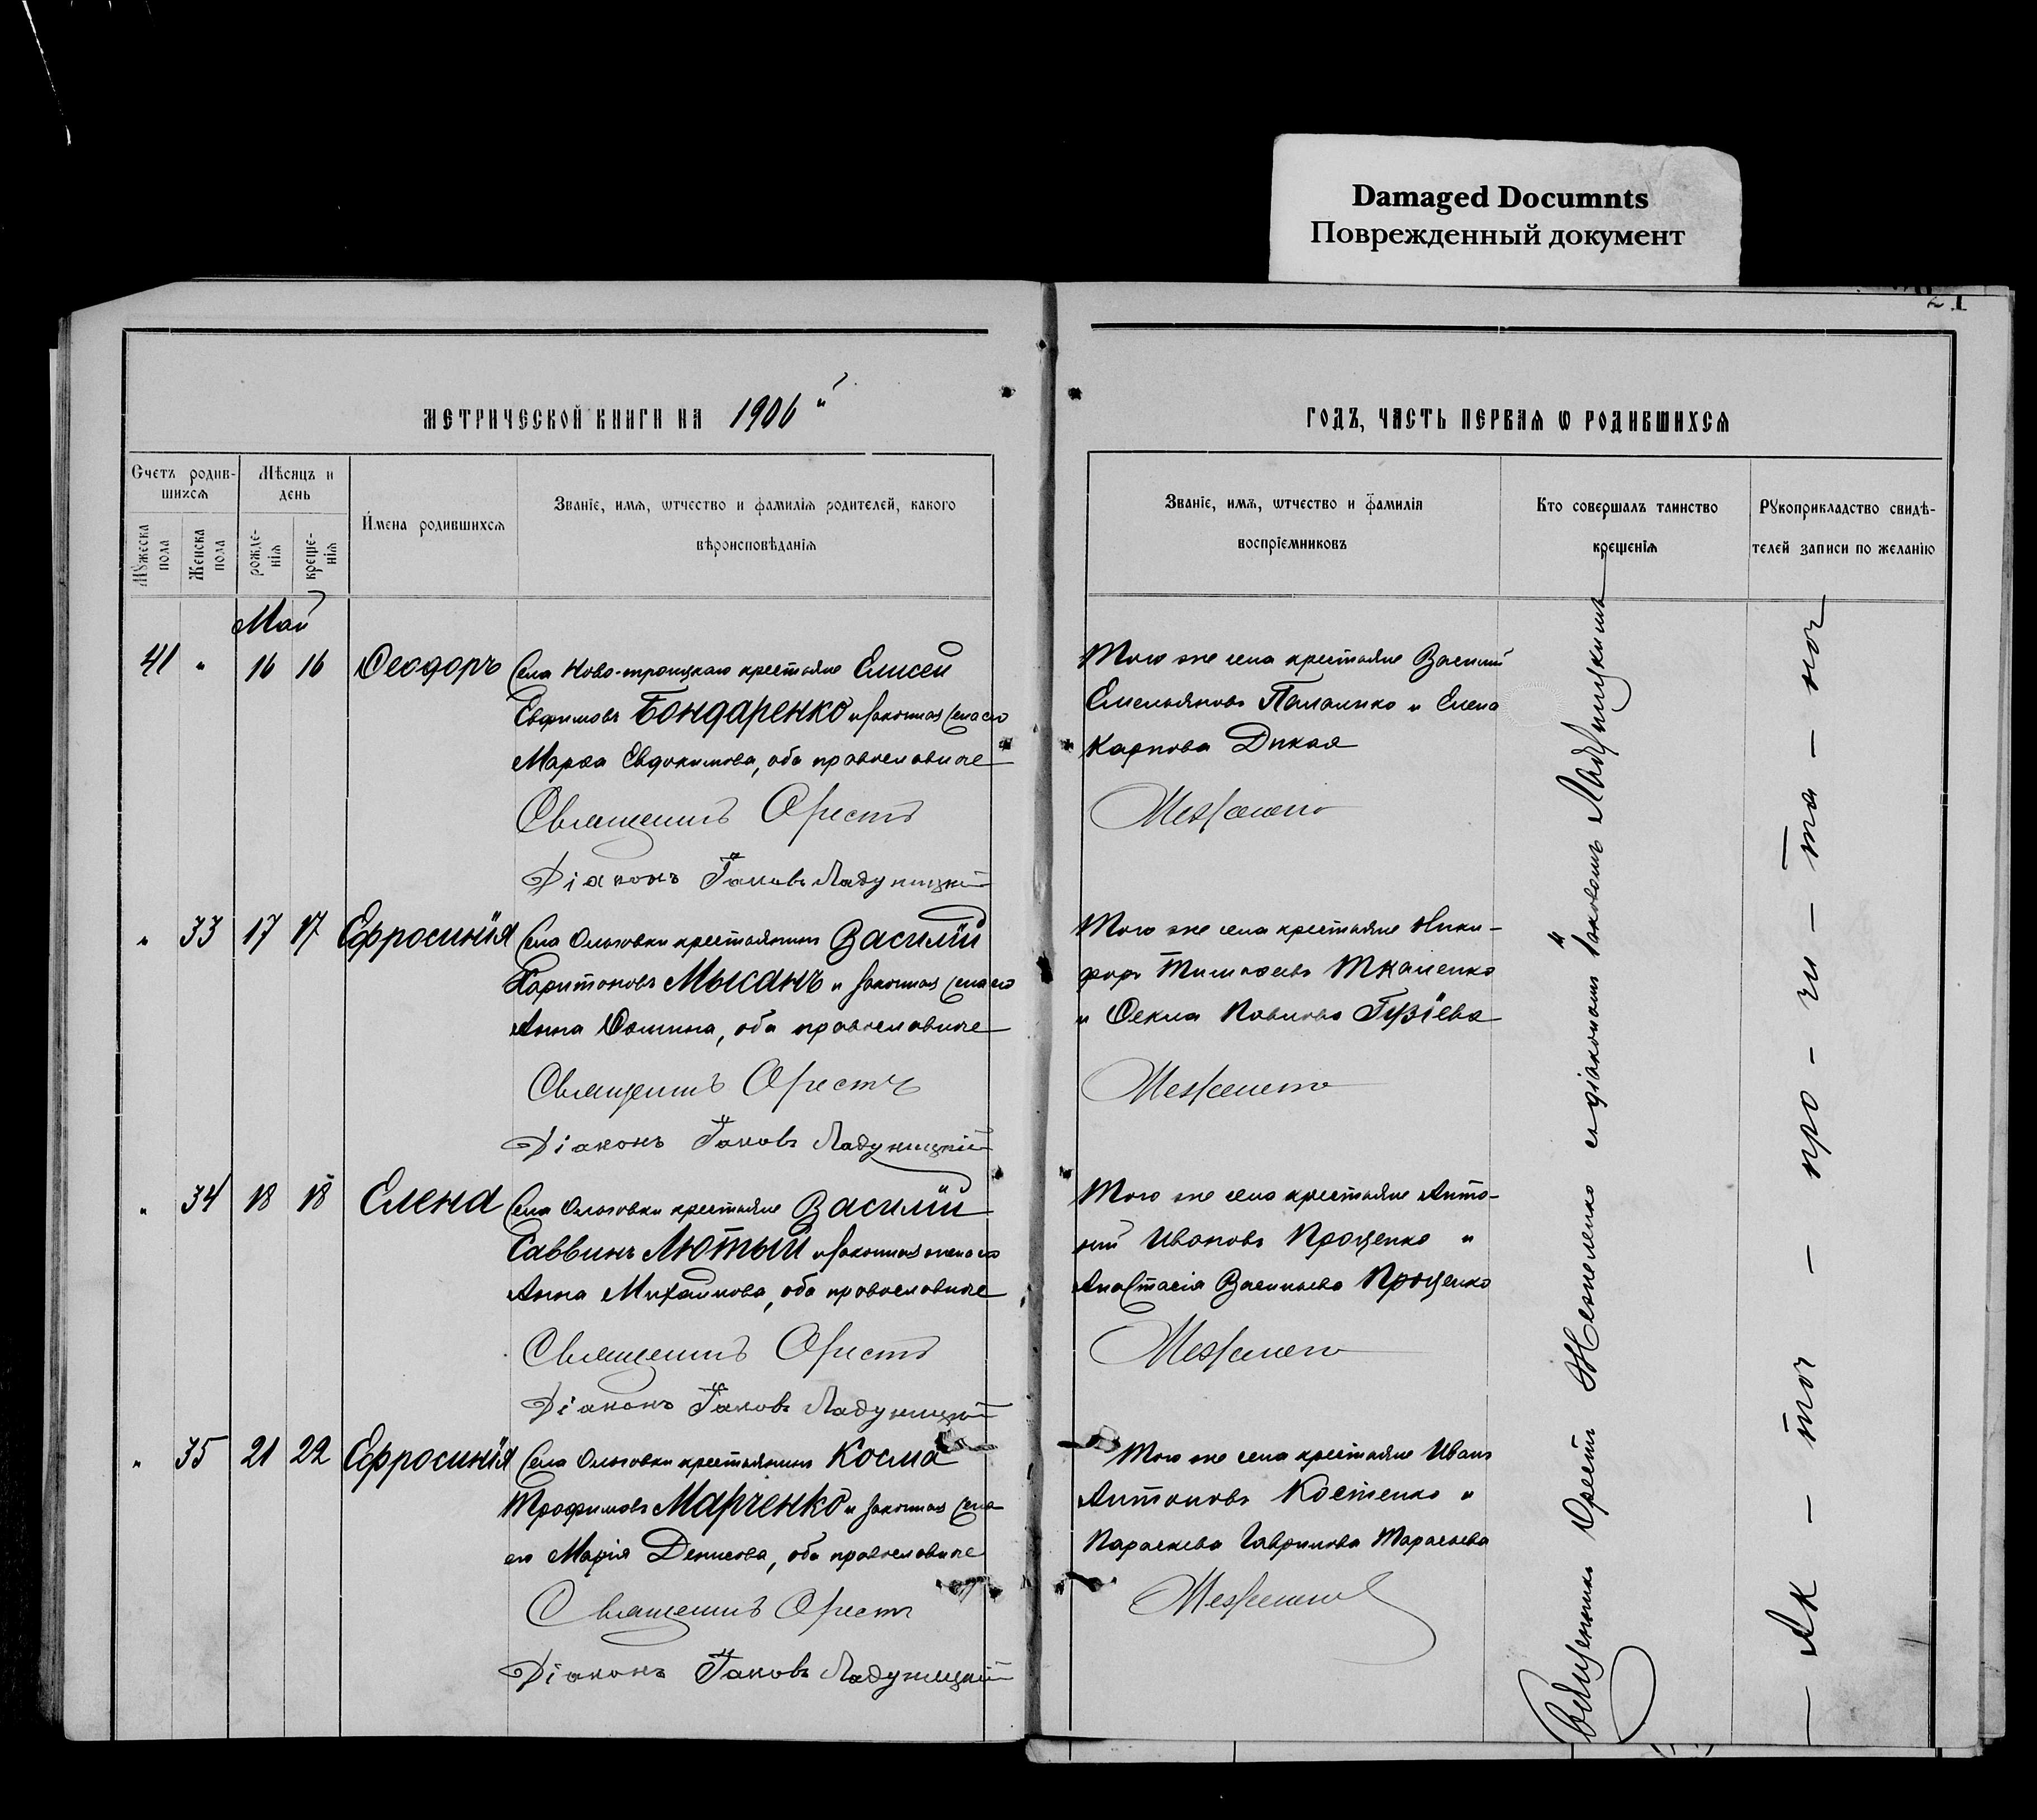 Damaged Documnts
Поврежденный документ
МЕТРИЧЕСКОЙ КНИГИ НА 1906
ГОДЪ, ЧАСТЬ ПЕРВАЯ Ѡ РОДИВШИХСЯ
Счетъ родив-
шихсѧ
Мѣсяцъ и
день
Мужеска
пола
Женска
пола
рожде-
нія
креще-
нія
Имена родившихсѧ
Званіе, имѧ, ѡтчество и фамилія родителей, какого
вѣроисповѣданія
Званіе, имѧ, ѡтчество и фамилія
воспріемниковъ
Кто совершалъ таинство
крещенія
Рукоприкладство свидѣ-
телей записи по желанію
Май
41 " 16 16 Ѳеодоръ Села Ново-троицкаго крестьяне Елисей
Евфимовъ Бондаренко и законная жена его
Марѳа Евдокимова, оба православные
Священникъ Орестъ
Діаконъ Іаковъ Ладужицкій
Того же села крестьяне Василій
Емельяновъ и Елена
Карпова Дикая
" 33 17 17 Ефросинія Села Ольговки крестьянинъ Василій
Харитоновъ Мысанъ и законная жена его
Анна Ѳомина, оба православные
Священникъ Орестъ
Діаконъ Іаковъ Ладужицкій
Того же села крестьяне Ники-
форъ Тимоѳеевъ Ткаченко
и Ѳекла Павлова Гузіева
" 34 18 18 Елена Села Ольговки крестьяне Василій
Саввинъ Лютый и законная жена его
Анна Михайлова, оба православные
Священникъ Орестъ
Діаконъ Іаковъ Ладужицкій
Того же села крестьяне Анто-
ній Ивановъ Проценко и
Анастасія Васильева Проценко
" 35 21 22 Ефросинія Села Ольговки крестьянинъ Косма
Трофимовъ Марченко и законная жена
его Марія Денисова, оба православные
Священникъ Орестъ
Діаконъ Іаковъ Ладужицкій
Того же села крестьяне Иванъ
Антоновъ Костенко и
Параскева Гаврилова Тарасьева
Священникъ Орестъ с діакономъ Іаковомъ Ладужицкимъ